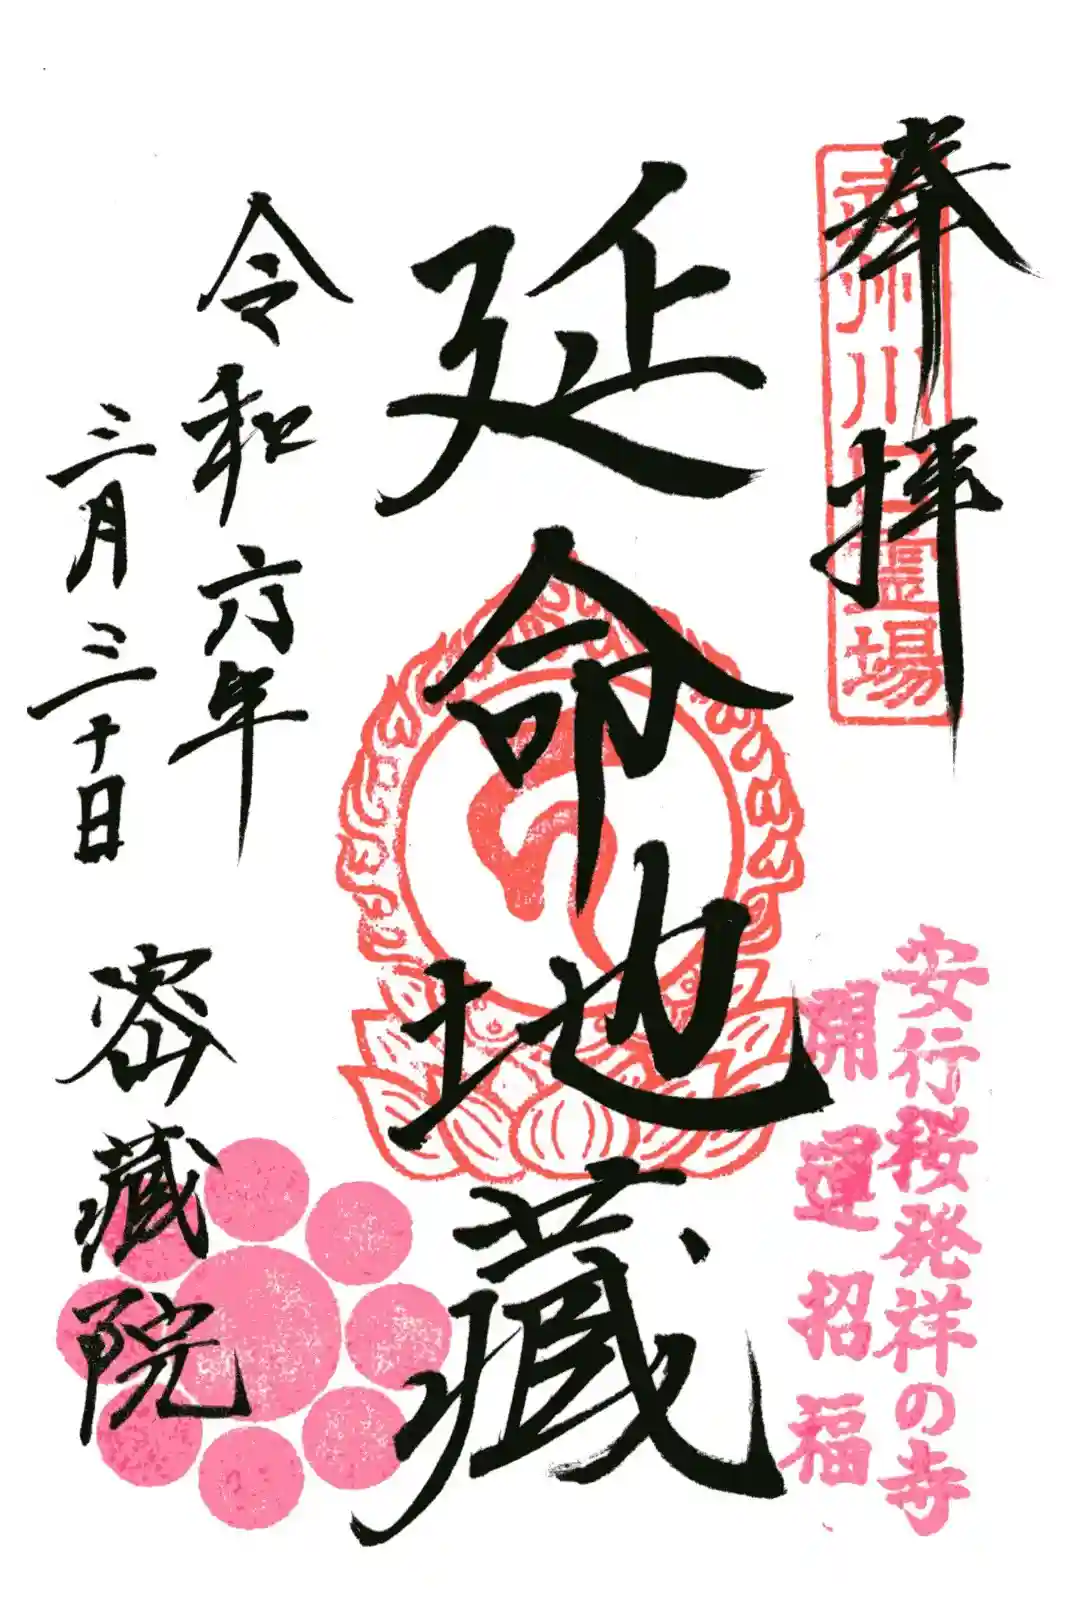 奉拝
武州川口霊場
安行桜発祥の寺
開運招福
延命地蔵
令和六年
三月三十日
密蔵院